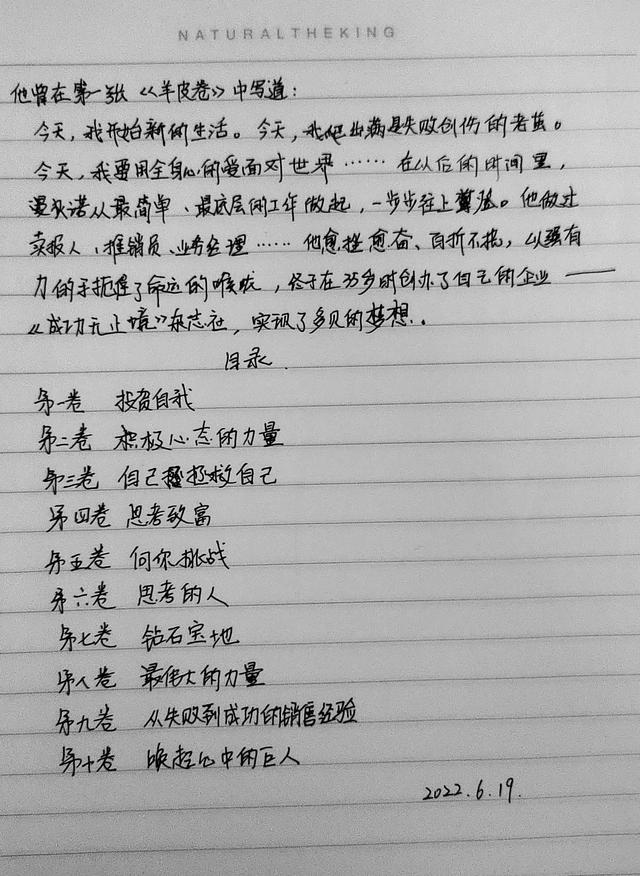 NATURALTHEKING
他曾在第一张《羊皮卷》中写道：
今天，我开始新的生活。今天，我爬出满是失败创伤的老茧。
今天，我要用全身心的爱面对世界……在以后的时间里，
承诺从最简单、最底层的工作做起，一步步往上。他做过
卖报人、推销员、业务经理……他愈挫愈奋、百折不挠，以强有
力的手扼握了命运的喉咙，终于在35岁时创办了自己的企业——
《成功无止境》杂志社，实现了多见的梦想。
目录
第一卷 投资自我
第二卷 积极心态的力量
第三卷 自己拯救自己
第四卷 思考致富
第五卷 向你挑战
第六卷 思考的人
第七卷 钻石宝地
第八卷 最伟大的力量
第九卷 从失败到成功的销售经验
第十卷 唤起心中的巨人
2022.6.19.